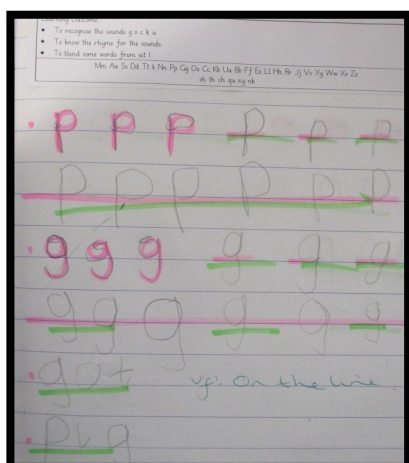 Learning Outcome
• To recognise the sounds g o c k u
• To know the rhyme for the sounds
• To blend some words from set 1
Mm Aa Ss Dd Tt Ii Nn Pp Gg Oo Cc Kk Uu Bb Ff Ee Ll Hh Rr Jj Vv Yy Ww Xx Zz
sh th ch qu ng nk
p p p p p p
p p p p p p
g g g g g g
g g g g g g
got vf: On the line.
pig